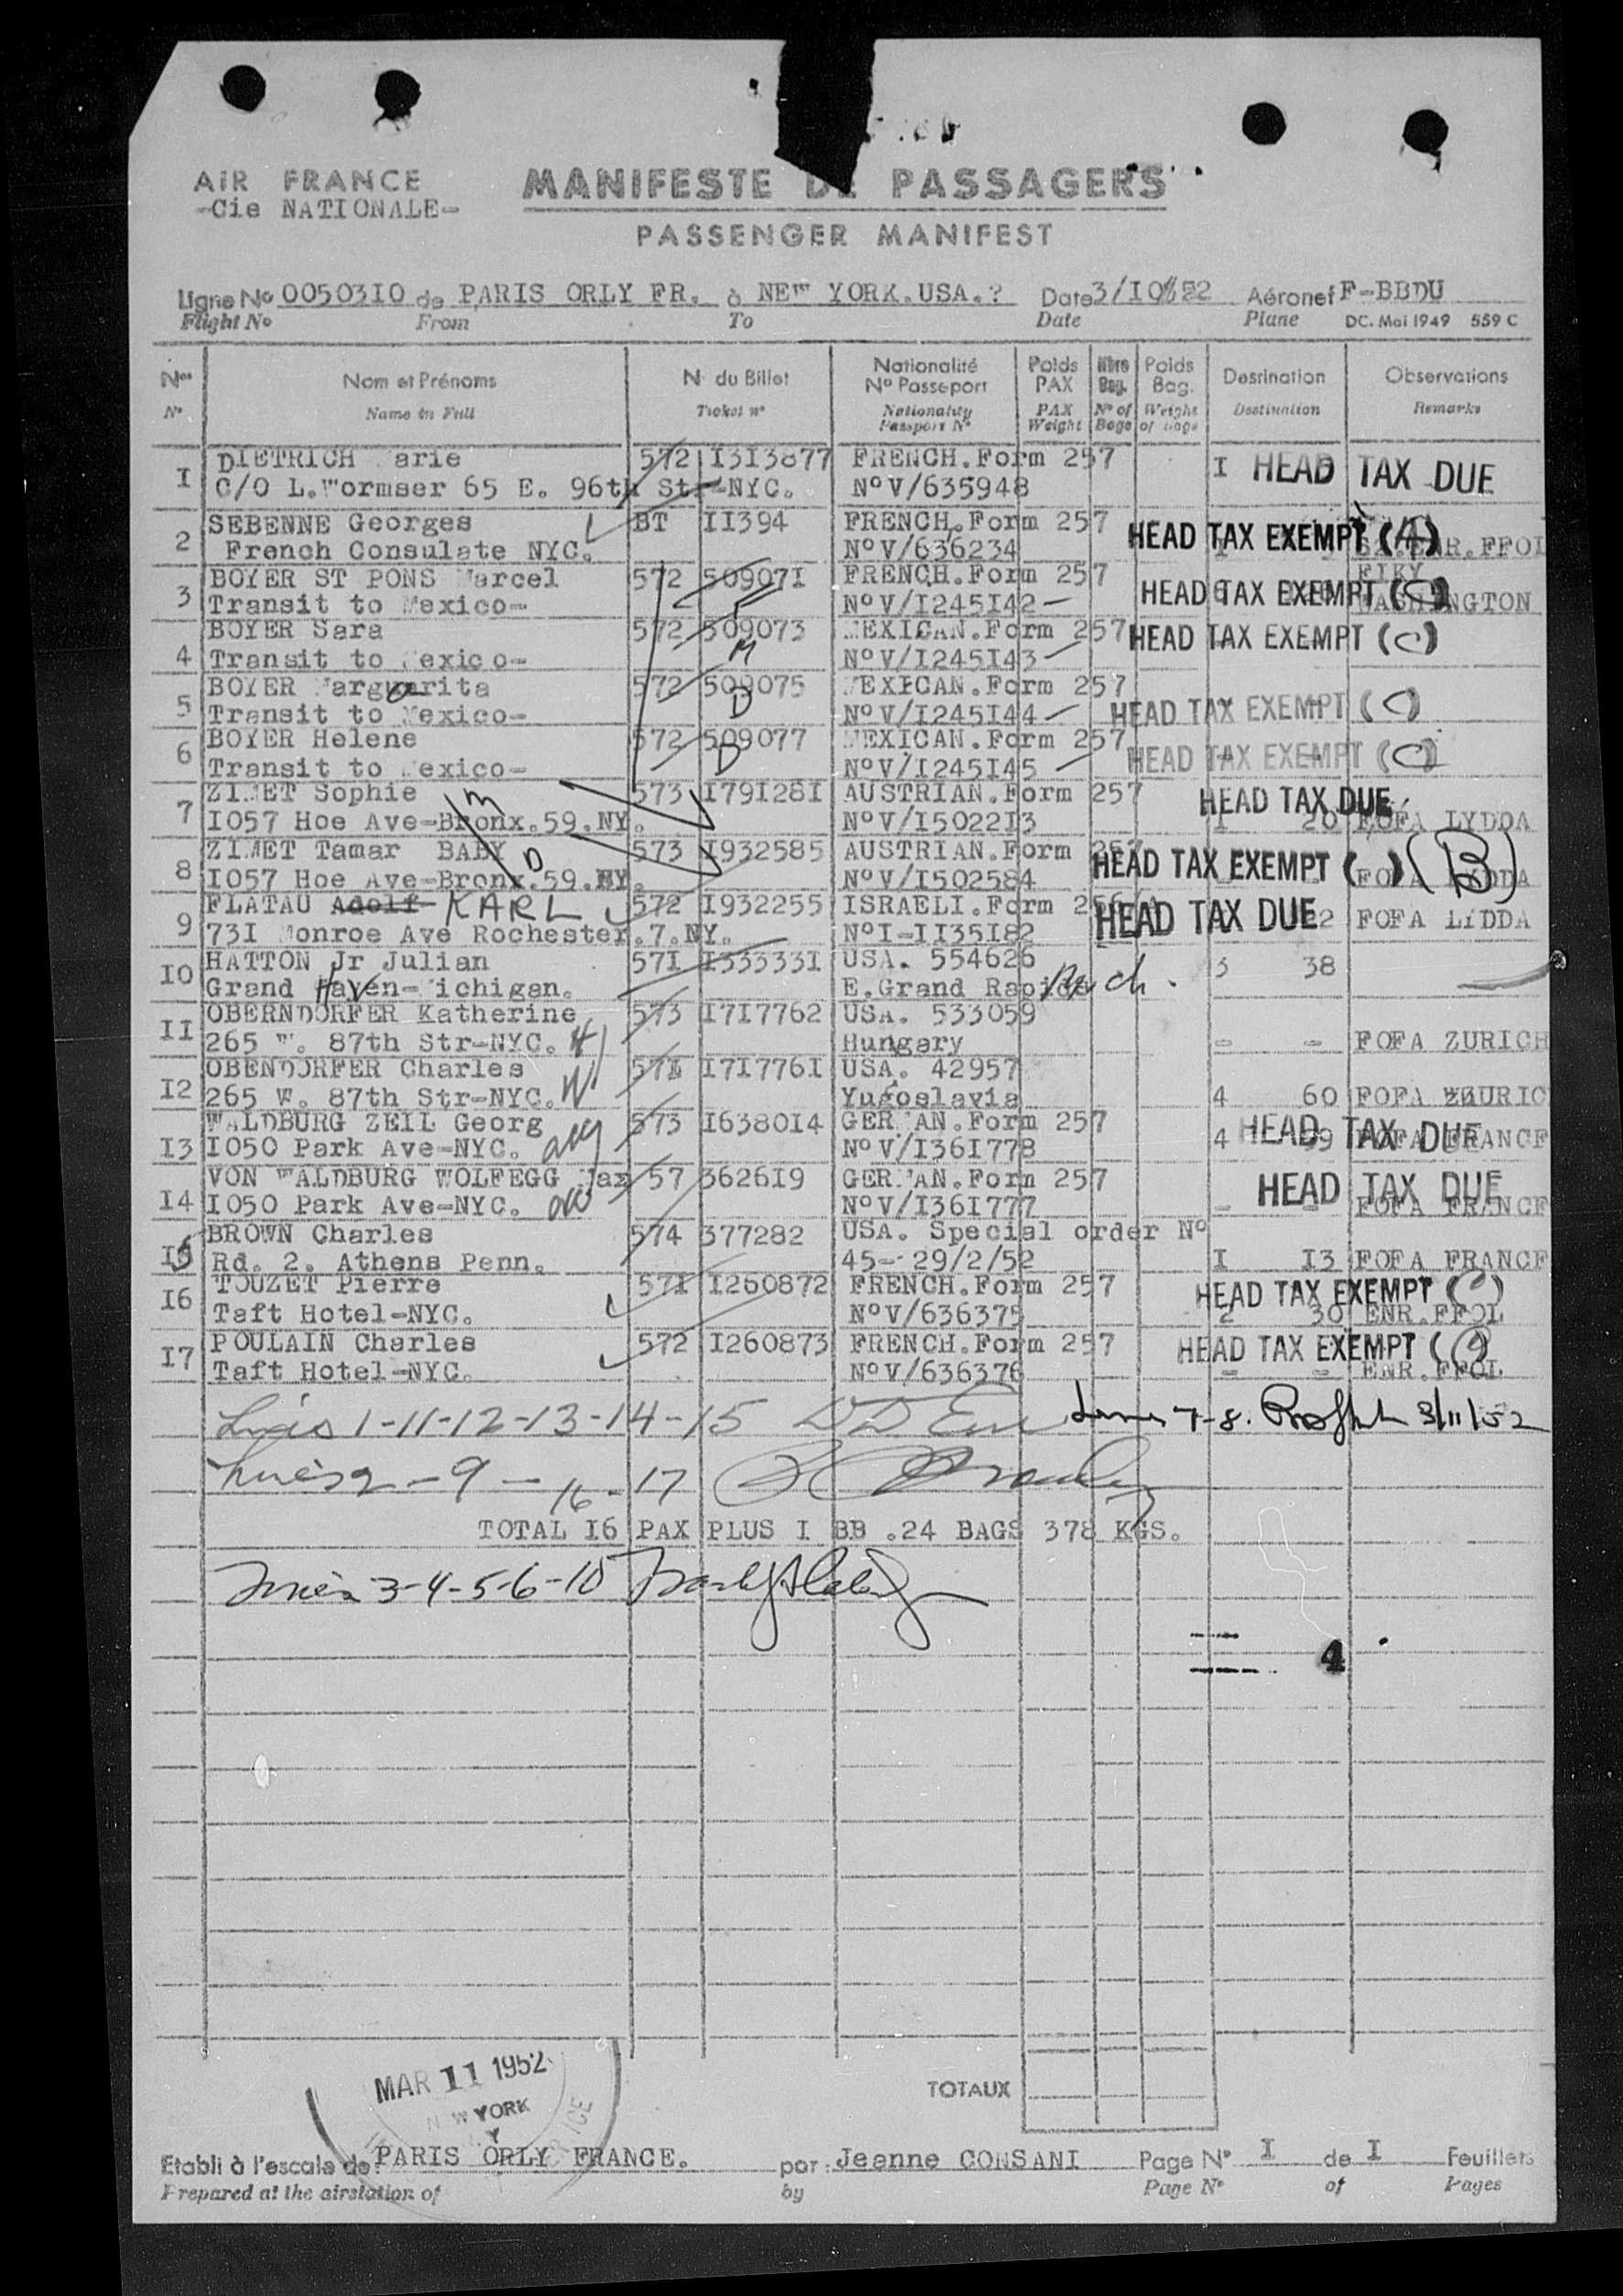 AIR FRANCE
-Cie NATIONALE-
MANIFESTE DE PASSAGERS
PASSENGER MANIFEST
Ligne No 0050310 de PARIS ORLY FR. à NEW YORK.USA.? Date 3/10/52 Aéronef F-BBDU
Flight No From To Date Plane DC. Mai 1949 559 C
Nos Nom et Prénoms N. du Billet Nationalité No Passeport Poids PAX Nbre Bag. Poids Bag. Desrination Observations
No Name in Full Ticket no Nationality Passport No PAX Weight No of Bags Weight of Bags Destination Remarks
I DIETRICH arie 572 I3I3877 FRENCH.Form 257 I HEAD TAX DUE
C/O L.Wormser 65 E. 96th Str-NYC. NoV/635948
2 SEBENNE Georges BT II394 FRENCH.Form 257 HEAD TAX EXEMPT (A)
French Consulate NYC. NoV/636234 ENR.FFOL
3 BOYER ST PONS Marcel 572 50907I FRENCH.Form 257 FIKY
Transit to Mexico- NoV/I245I42- 6 HEAD TAX EXEMPT (C) WASHINGTON
4 BOYER Sara 572 509073 MEXICAN.Form 257 HEAD TAX EXEMPT (C)
Transit to Mexico- M NoV/I245I43
5 BOYER Marguarita 572 509075 MEXICAN.Form 257
Transit to Mexico- D NoV/I245I44- HEAD TAX EXEMPT (C)
6 BOYER Helene 572 509077 MEXICAN.Form 257
Transit to Mexico- D NoV/I245I45 HEAD TAX EXEMPT (C)
7 ZIMET Sophie M 573 I79I28I AUSTRIAN.Form 257 HEAD TAX DUE
I057 Hoe Ave-Bronx.59.NY. NoV/I5022I3 I 20 FOFA LYDDA
8 ZIMET Tamar BABY D 573 I932585 AUSTRIAN.Form 257
I057 Hoe Ave-Bronx.59.NY. NoV/I502584 HEAD TAX EXEMPT ( ) (B) FOFA LYDDA
9 FLATAU Adolf KARL 572 I932255 ISRAELI.Form 256
73I Monroe Ave Rochester.7.NY. NoI-II35I82 HEAD TAX DUE 22 FOFA LYDDA
I0 HATTON Jr Julian 57I I33333I USA. 554626 3 38
Grand Haven-Michigan. E.Grand Rapids Mich.
II OBERNDORFER Katherine 573 I7I7762 USA. 533059
265 W. 87th Str-NYC. H Hungary - - FOFA ZURICH
I2 OBENDORFER Charles 57I I7I776I USA. 42957
265 W. 87th Str-NYC. W Yugoslavia 4 60 FOFA ZURIC
I3 WALDBURG ZEIL Georg 573 I6380I4 GERMAN.Form 257
I050 Park Ave-NYC. NoV/I36I778 4 39 HEAD TAX DUE FOFA FRANCF
I4 VON WALDBURG WOLFEGG Max 57 3626I9 GERMAN.Form 257 HEAD TAX DUE
I050 Park Ave-NYC. NoV/I36I777 - - FOFA FRANCF
I5 BROWN Charles 574 377282 USA. Special order No
Rd. 2. Athens Penn. 45--29/2/52 I I3 FOFA FRANCF
I6 TOUZET Pierre 57I I260872 FRENCH.Form 257 HEAD TAX EXEMPT (C)
Taft Hotel-NYC. NoV/636375 2 30 ENR.FFOL
I7 POULAIN Charles 572 I260873 FRENCH.Form 257 HEAD TAX EXEMPT (C)
Taft Hotel-NYC. NoV/636376 - - ENR.FFOL
Lines 1-11-12-13-14-15 Lines 7-8. 3/11/52
Lines 2-9-16-17
TOTAL I6 PAX PLUS I BB .24 BAGS 378 KGS.
Lines 3-4-5-6-10
4
MAR 11 1952
NEW YORK
TOTAUX
Etabli à l'escale de: PARIS ORLY FRANCE. par: Jeanne CONSANI Page No I de I Feuillets
Prepared at the airstation of by Page No of Pages